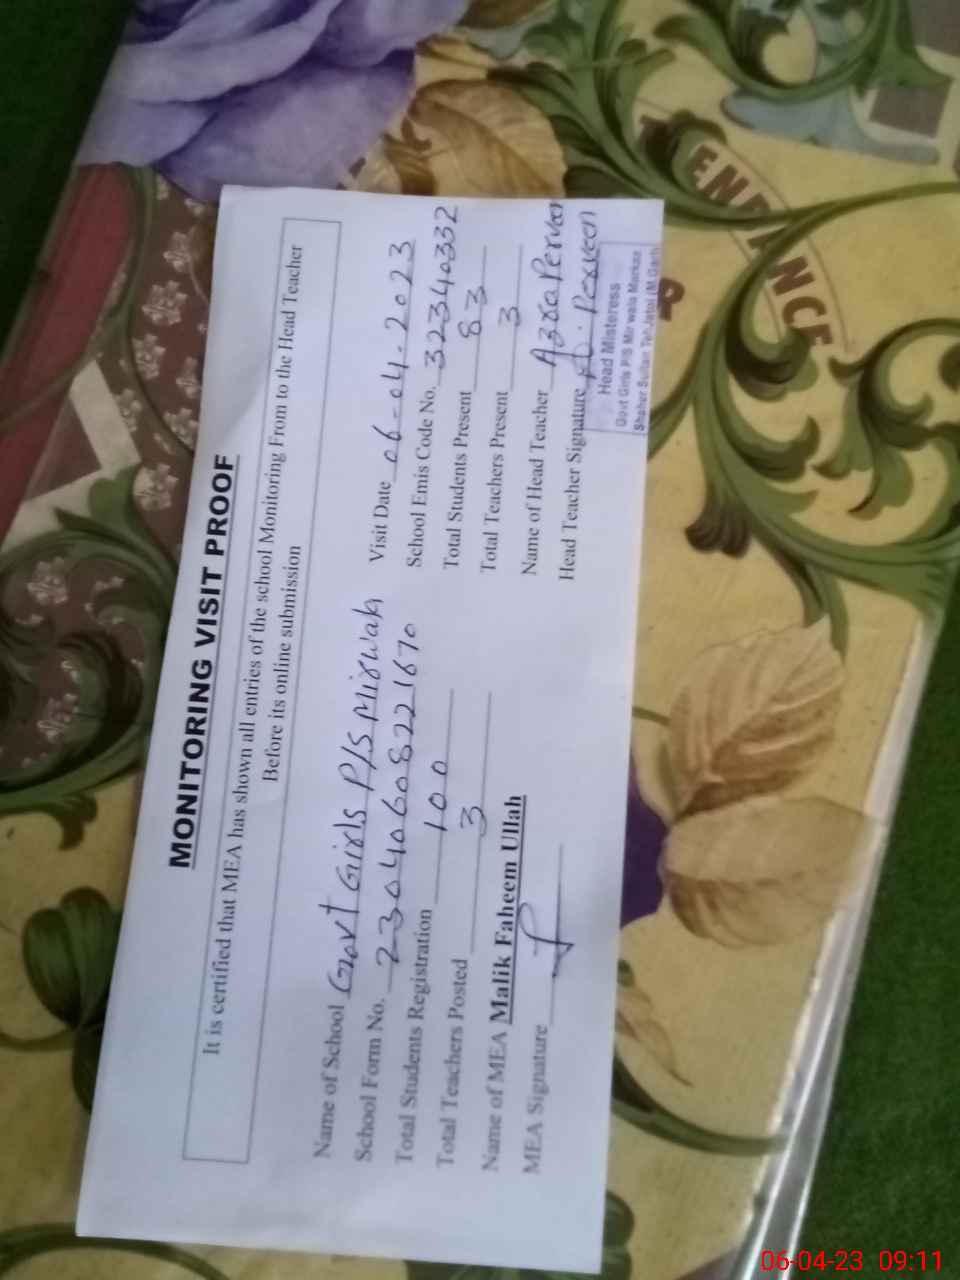 MONITORING VISIT PROOF
It is certified that MEA has shown all entries of the school Monitoring From to the Head Teacher
Before its online submission
Name of School Govt Girls P/S Mirwah
Visit Date 06-04-2023
School Form No. 23040608221670
School Emis Code No. 32340332
Total Students Registration 100
Total Students Present 83
Total Teachers Posted 3
Total Teachers Present 3
Name of MEA Malik Faheem Ullah
Name of Head Teacher Azra Perveen
MEA Signature
Head Teacher Signature A. Perveen
Head Misteress
Govt Girls P/S Mir wala Markaz
Shaher Sultan Teh Jatoi M.Garh
06-04-23 09:11